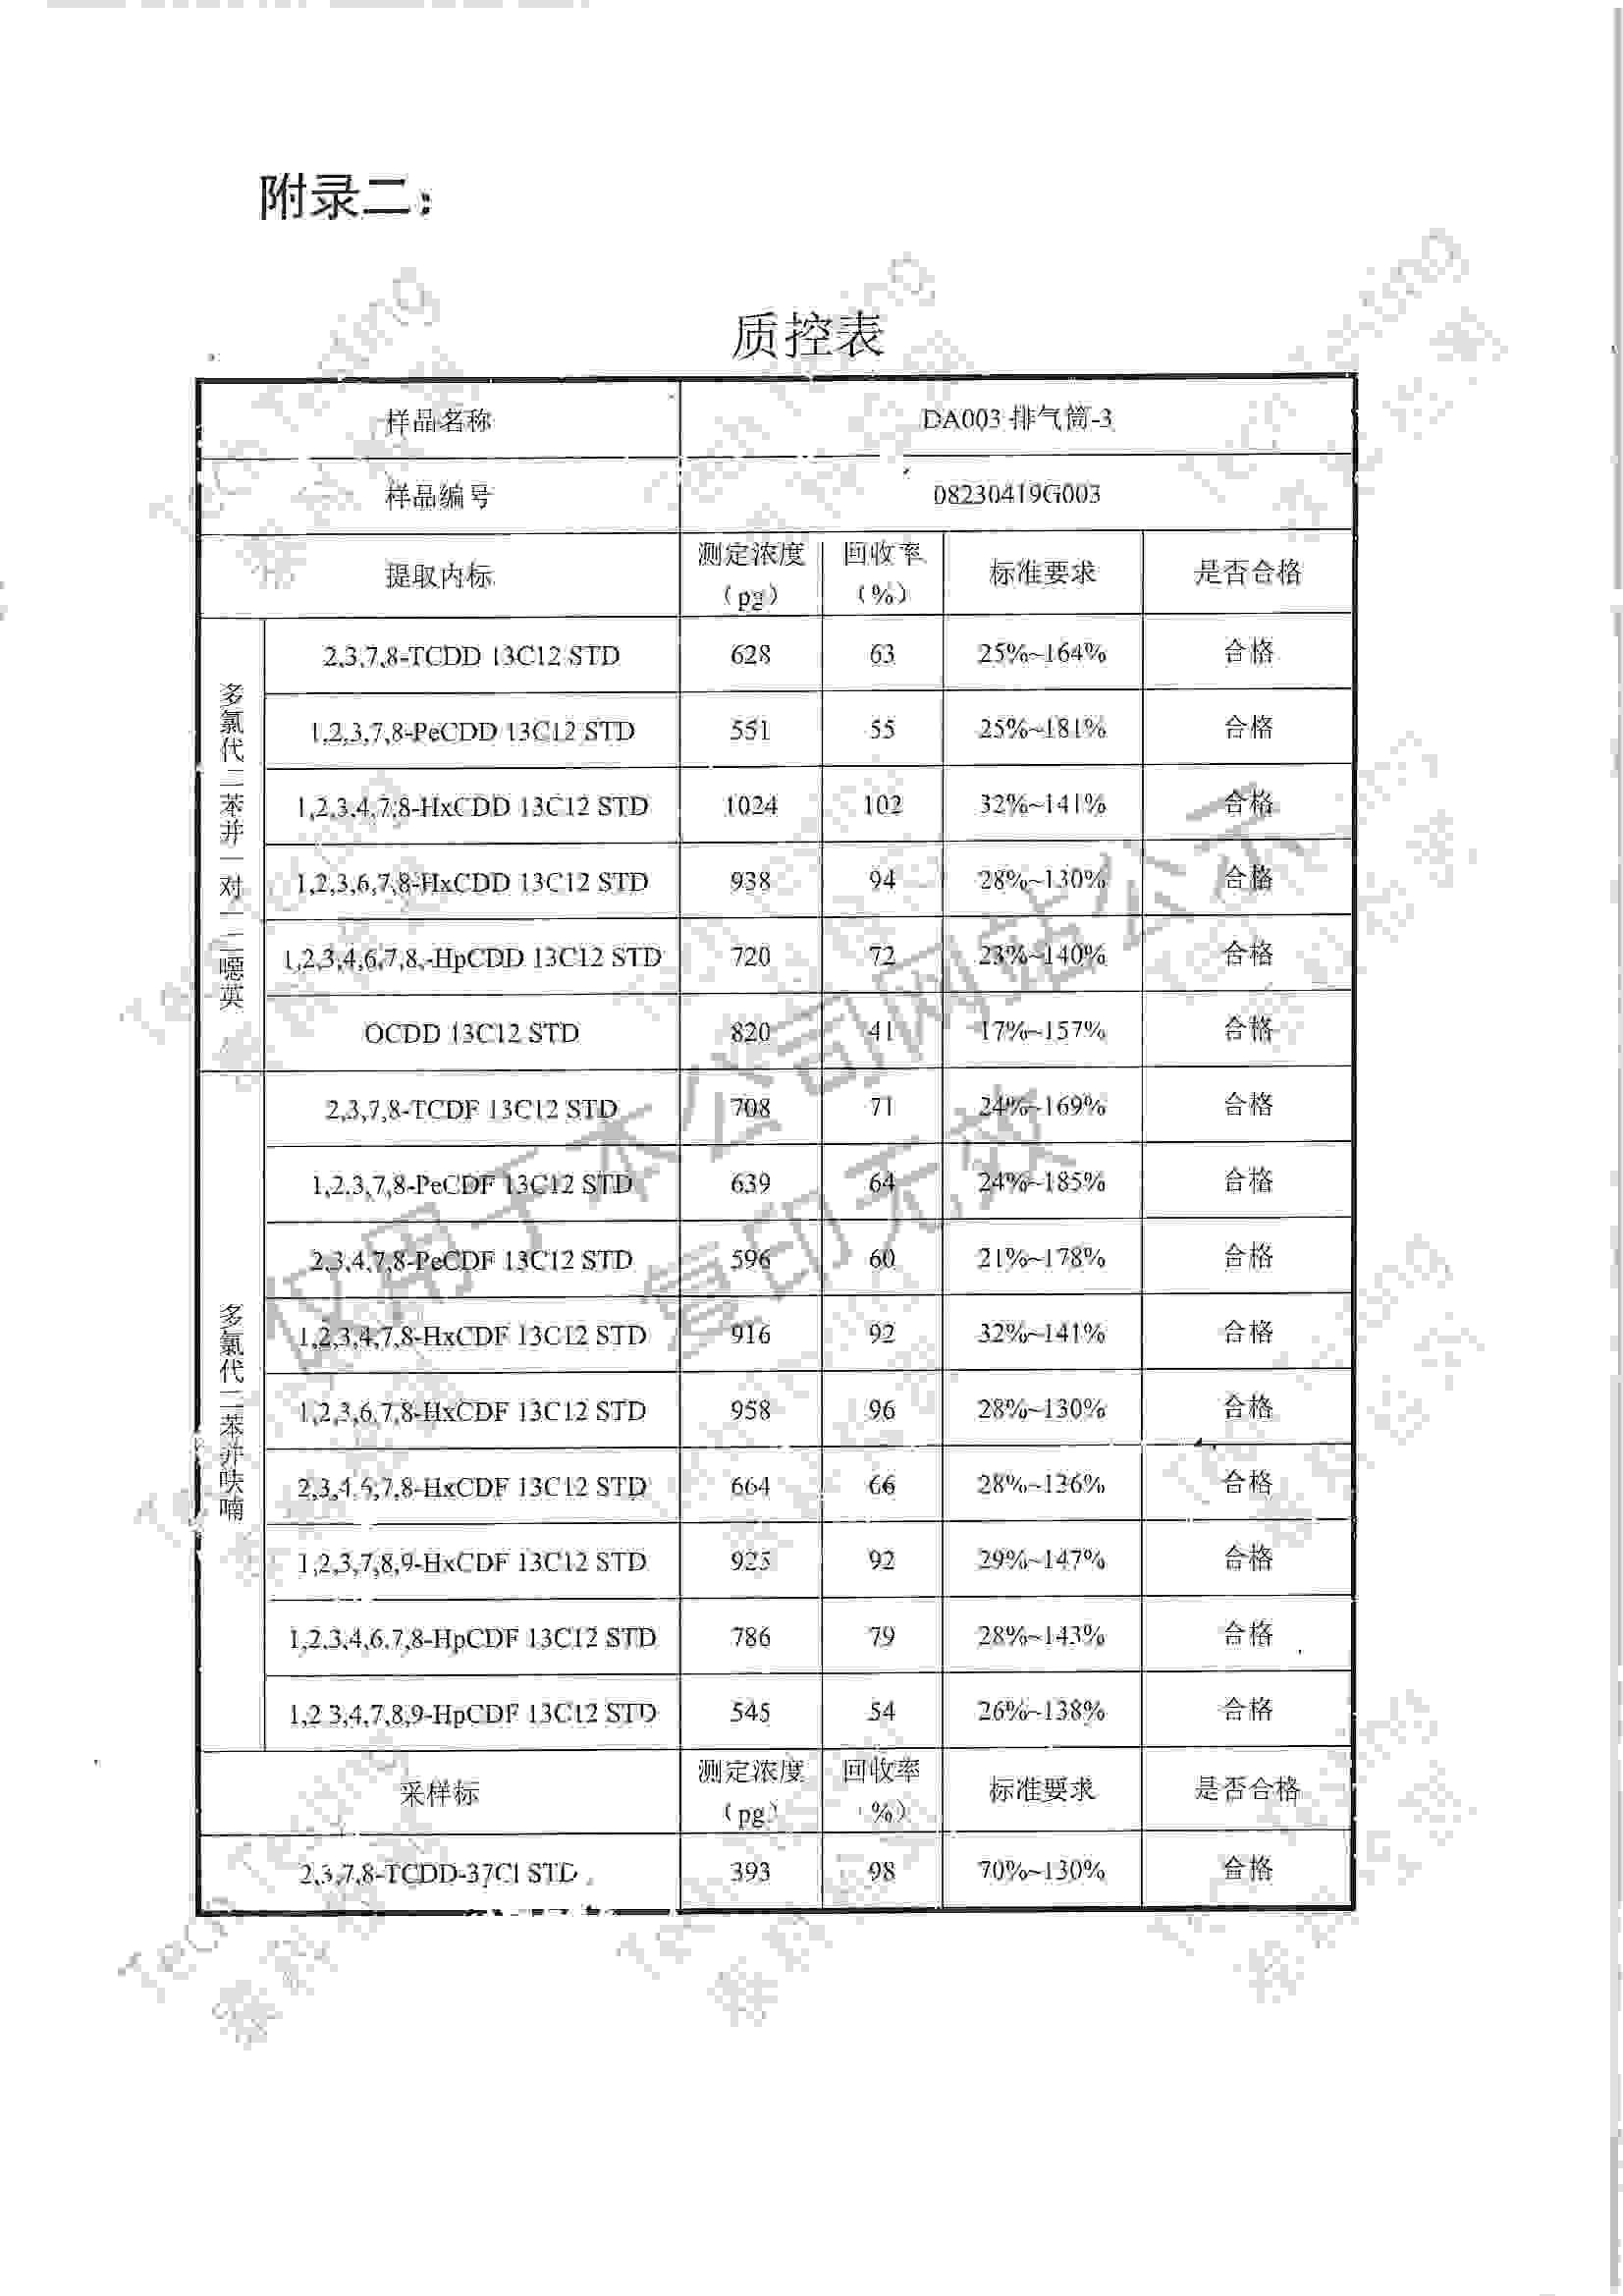 附录二：
质控表
样品名称 DA003 排气筒-3
样品编号 08230419G003
提取内标 测定浓度（pg） 回收率（%） 标准要求 是否合格
多氯代二苯并一对一二噁英
2,3,7,8-TCDD 13C12 STD 628 63 25%~164% 合格
1,2,3,7,8-PeCDD 13C12 STD 551 55 25%~181% 合格
1,2,3,4,7,8-HxCDD 13C12 STD 1024 102 32%~141% 合格
1,2,3,6,7,8-HxCDD 13C12 STD 938 94 28%~130% 合格
1,2,3,4,6,7,8,-HpCDD 13C12 STD 720 72 23%~140% 合格
OCDD 13C12 STD 820 41 17%~157% 合格
多氯代二苯并呋喃
2,3,7,8-TCDF 13C12 STD 708 71 24%~169% 合格
1,2,3,7,8-PeCDF 13C12 STD 639 64 24%~185% 合格
2,3,4,7,8-PeCDF 13C12 STD 596 60 21%~178% 合格
1,2,3,4,7,8-HxCDF 13C12 STD 916 92 32%~141% 合格
1,2,3,6,7,8-HxCDF 13C12 STD 958 96 28%~130% 合格
2,3,4,6,7,8-HxCDF 13C12 STD 664 66 28%~136% 合格
1,2,3,7,8,9-HxCDF 13C12 STD 925 92 29%~147% 合格
1,2,3,4,6,7,8-HpCDF 13C12 STD 786 79 28%~143% 合格
1,2,3,4,7,8,9-HpCDF 13C12 STD 545 54 26%~138% 合格
采样标 测定浓度（pg） 回收率（%） 标准要求 是否合格
2,3,7,8-TCDD-37Cl STD 393 98 70%~130% 合格
仅用于本公司网站公示
复印无效